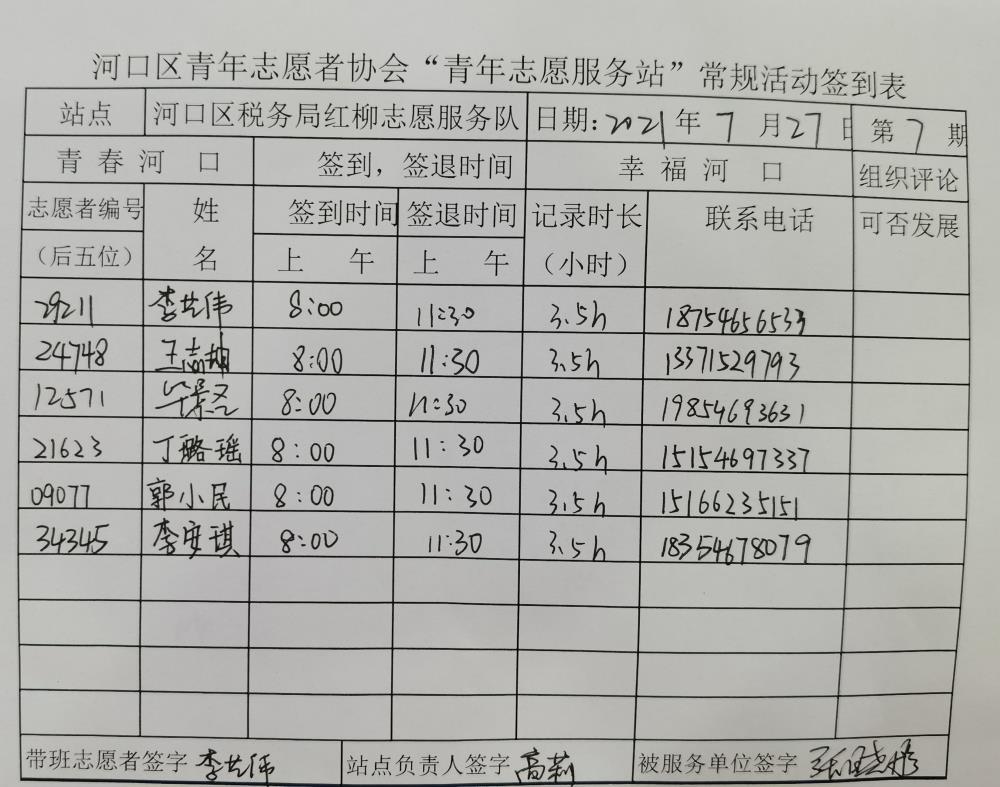 河口区青年志愿者协会“青年志愿服务站”常规活动签到表
站点 河口区税务局红柳志愿服务队 日期:2021年7月27日 第7期
青春河口 签到,签退时间 幸福河口 组织评论
志愿者编号 姓 签到时间 签退时间 记录时长 联系电话 可否发展
(后五位) 名 上午 上午 (小时)
29211 李共伟 8:00 11:30 3.5h 18754656533
24748 王志坤 8:00 11:30 3.5h 13371529793
12571 8:00 11:30 3.5h 19854693631
21623 丁璐瑶 8:00 11:30 3.5h 15154697337
09077 郭小民 8:00 11:30 3.5h 15166235151
34345 李安琪 8:00 11:30 3.5h 18354678079
带班志愿者签字 李共伟 站点负责人签字 高莉 被服务单位签字